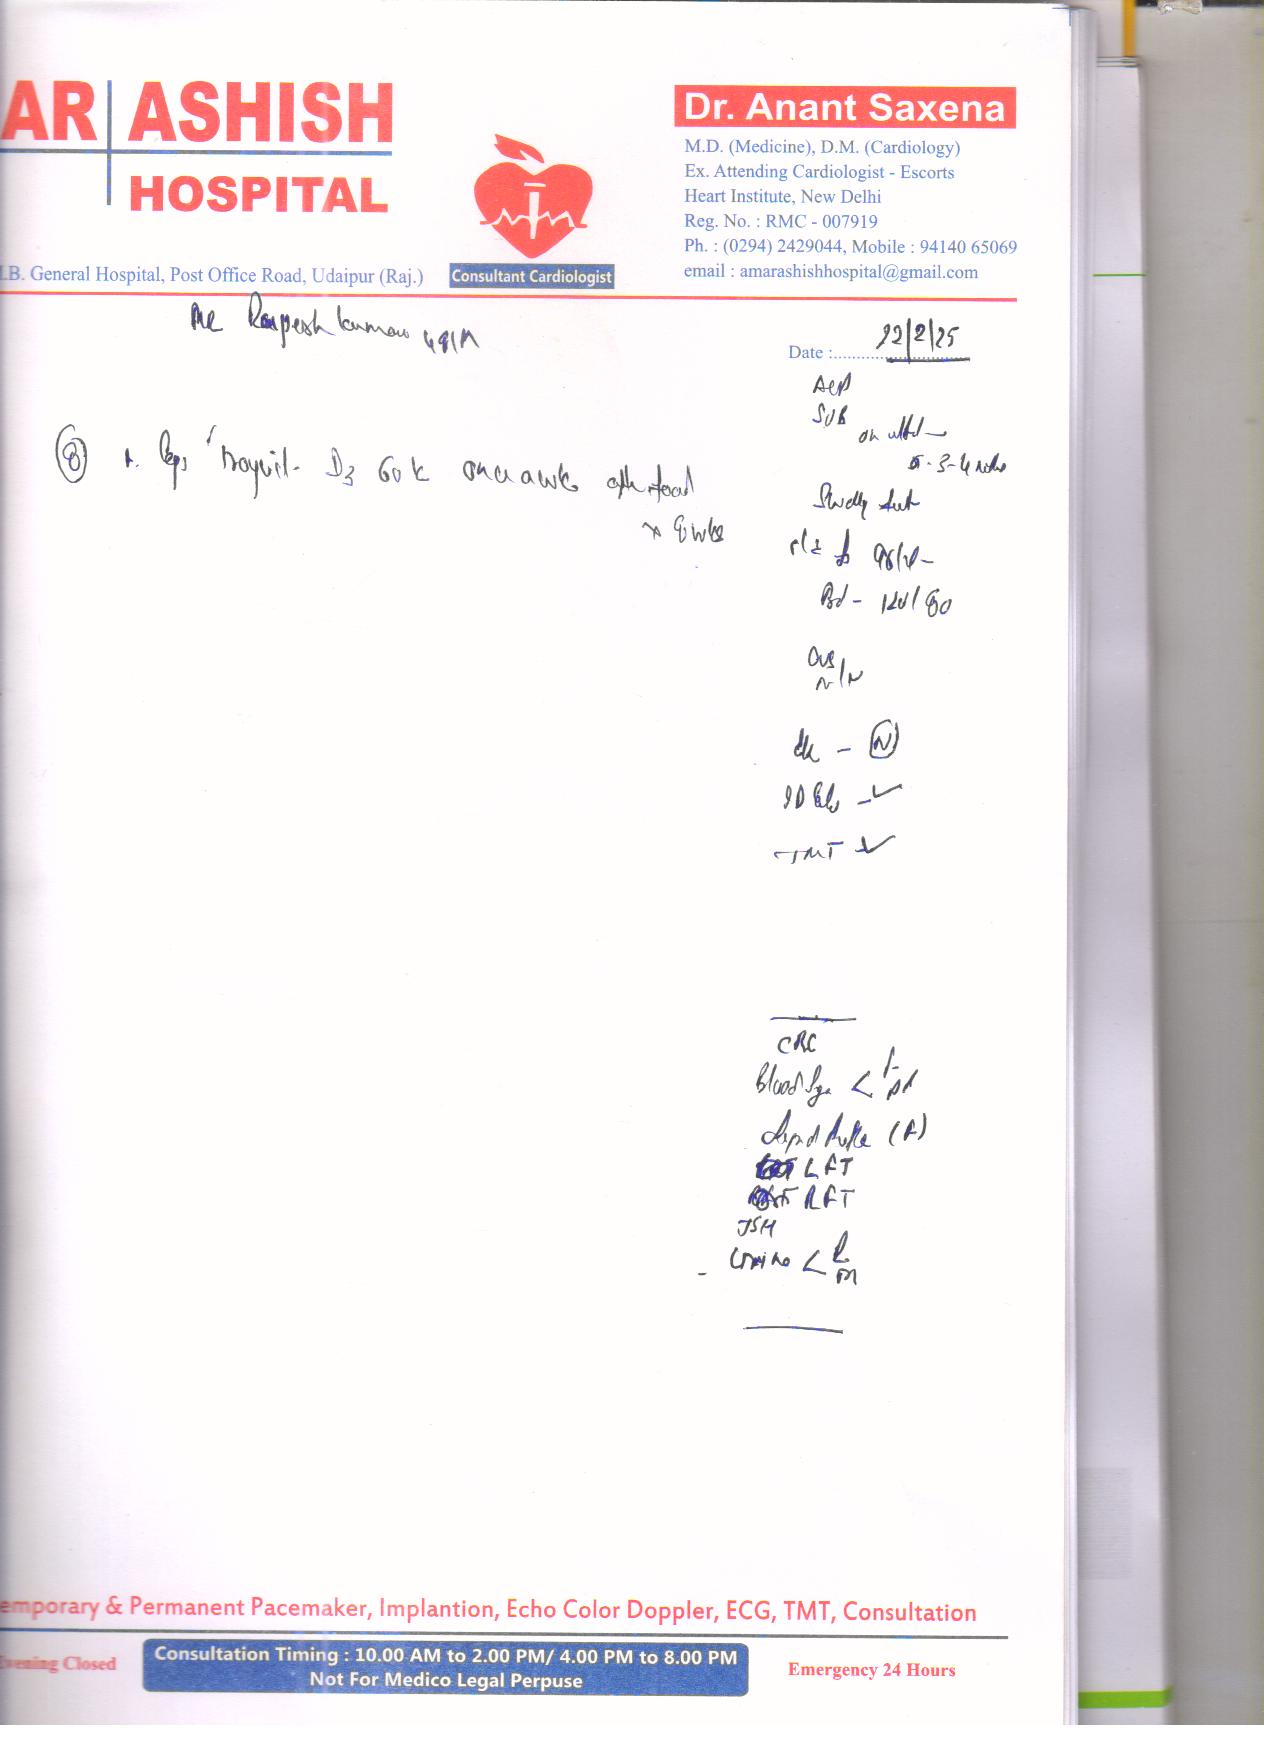 AR ASHISH
HOSPITAL
.B. General Hospital, Post Office Road, Udaipur (Raj.)
Consultant Cardiologist
Dr. Anant Saxena
M.D. (Medicine), D.M. (Cardiology)
Ex. Attending Cardiologist - Escorts
Heart Institute, New Delhi
Reg. No. : RMC - 007919
Ph. : (0294) 2429044, Mobile : 94140 65069
email : amarashishhospital@gmail.com
Mr Kumar
Date : 22/2/25
SOB
on
3-4
D3 60 k once a wk after food
x 8 wks
98/
120/80
N/N
- N
2D Echo -
TMT
CBC
Blood Sgr < F PP
Lipid Profile (F)
LFT
RFT
TSH
Urine < R M
emporary & Permanent Pacemaker, Implantion, Echo Color Doppler, ECG, TMT, Consultation
Evening Closed
Consultation Timing : 10.00 AM to 2.00 PM/ 4.00 PM to 8.00 PM
Not For Medico Legal Perpuse
Emergency 24 Hours